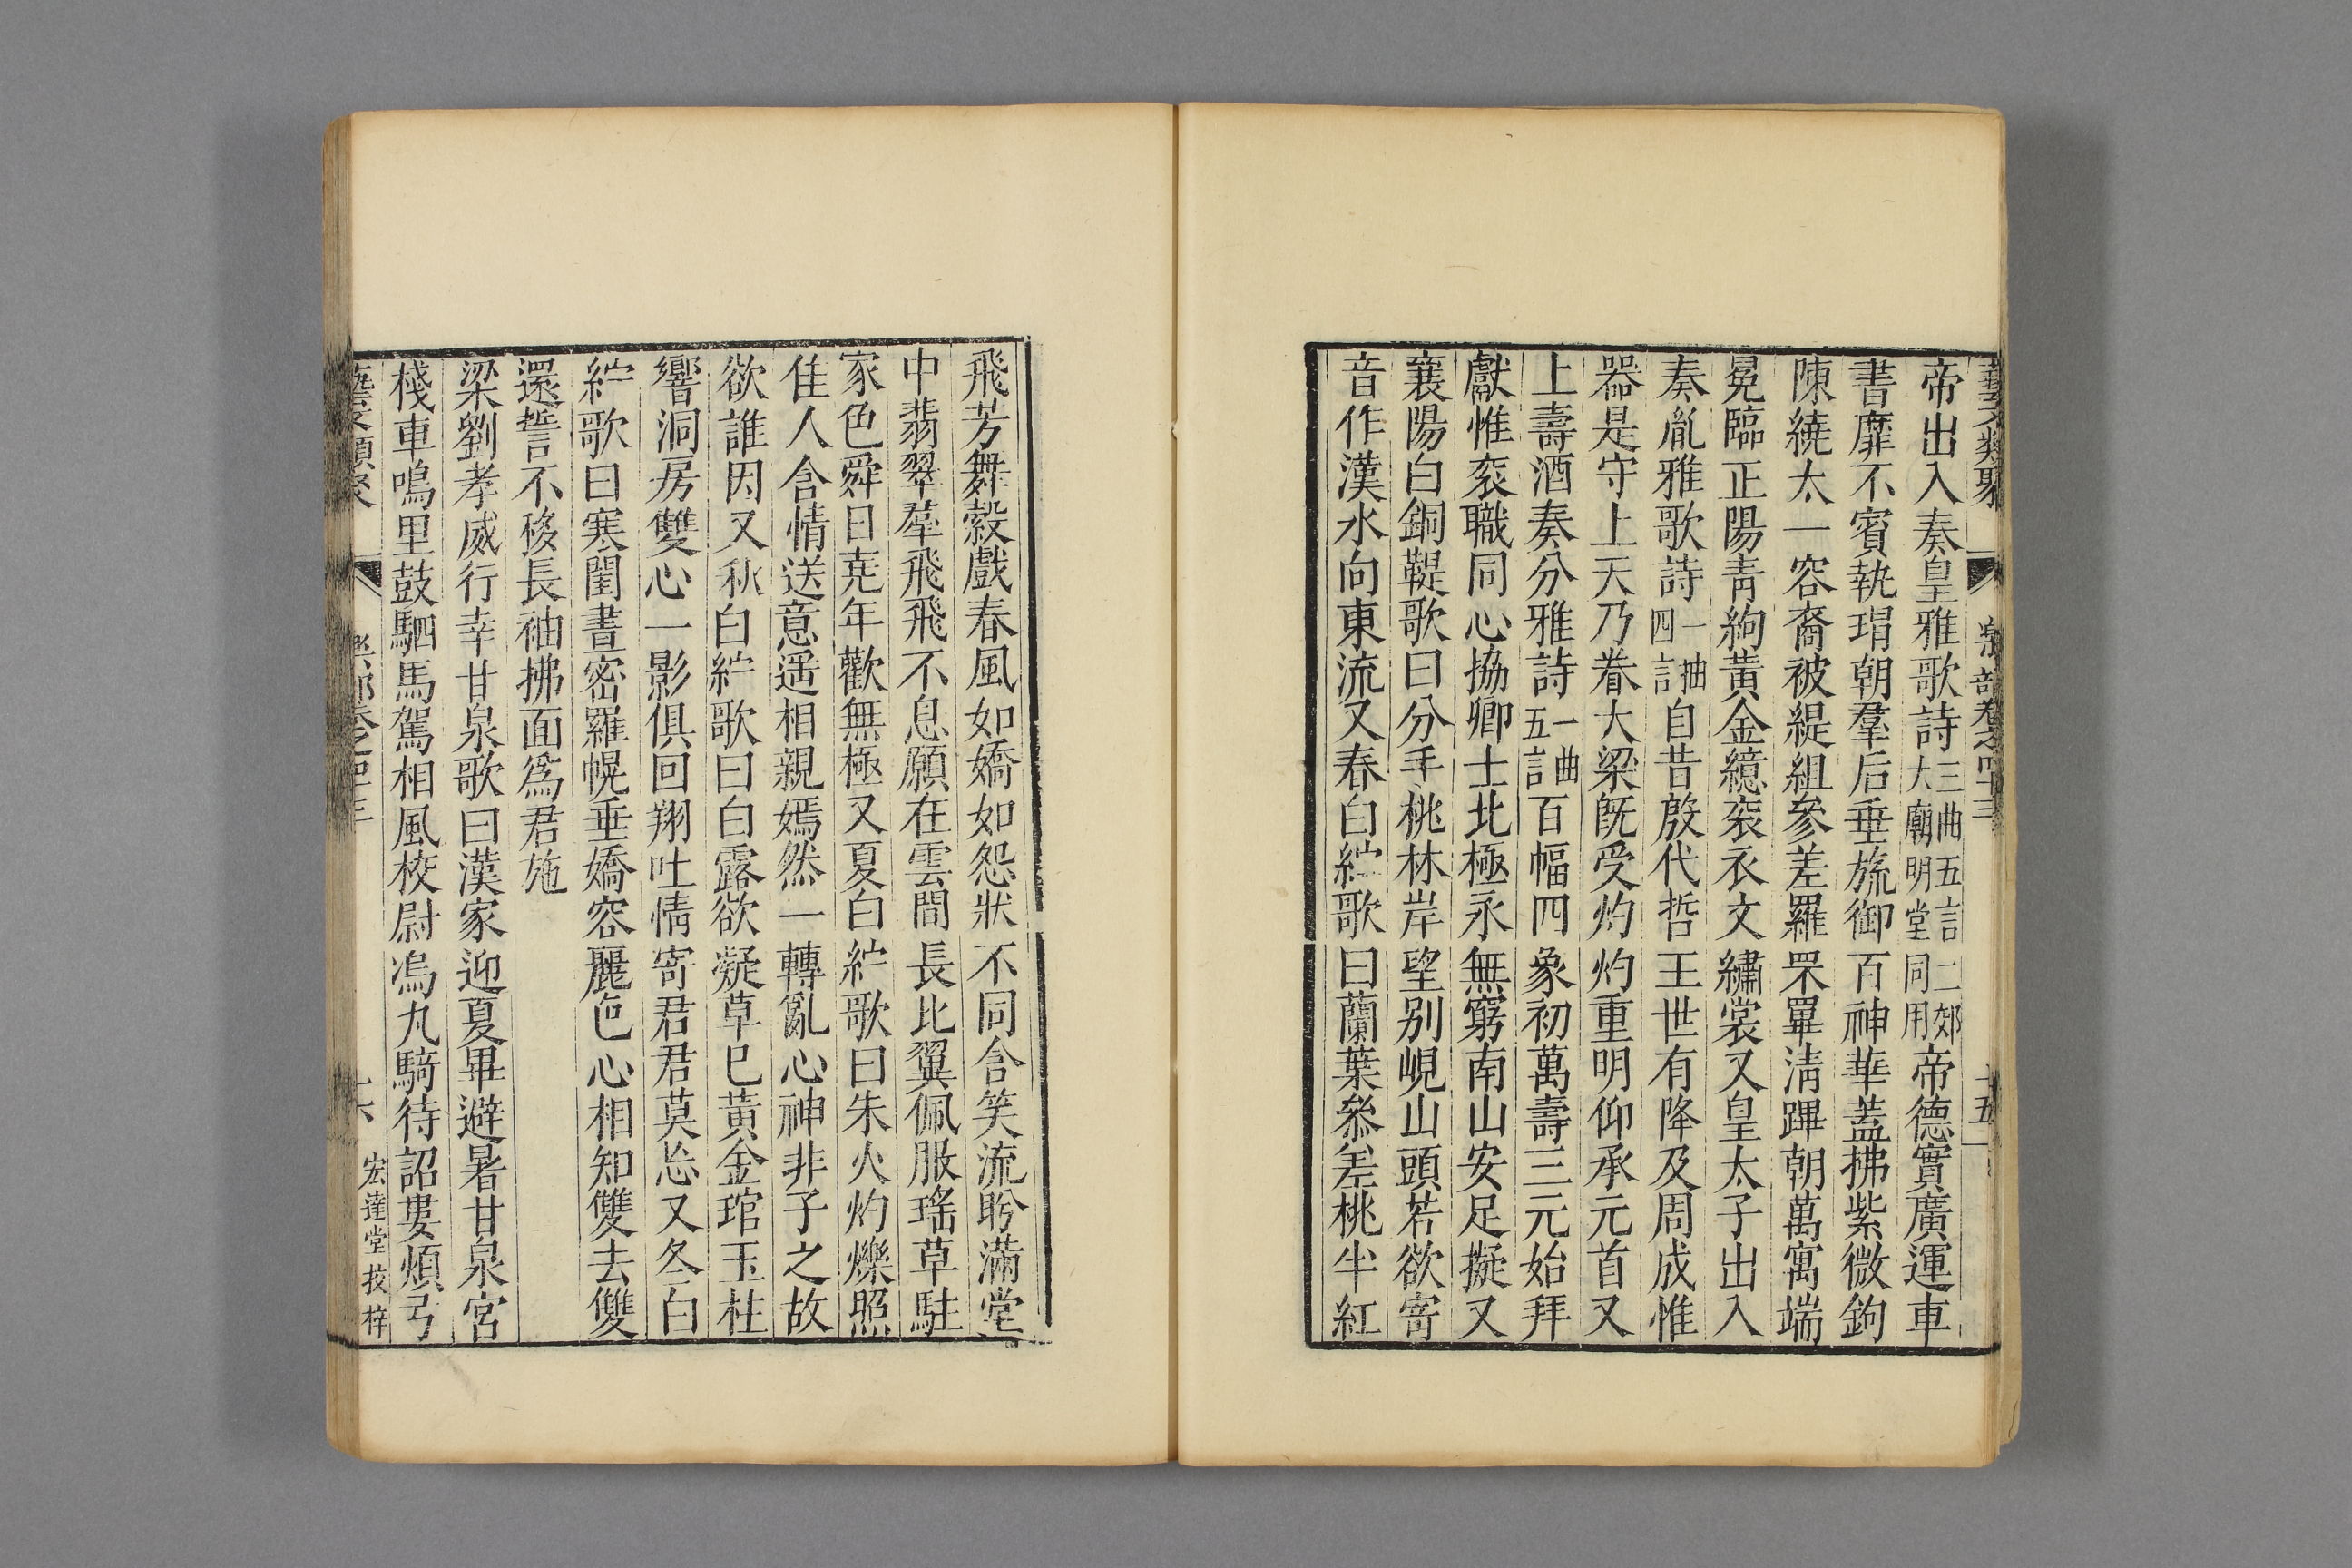 藝文類聚 樂部卷之四十三 十五
帝出入奏皇雅歌詩三曲五言二郊大廟明堂同用帝德實廣運車
書靡不賓執瑁朝羣后垂旒御百神華蓋拂紫微鉤
陳繞太一容裔被緹組參差羅罘罼清蹕朝萬㝢端
冕臨正陽青絇黃金繶袞衣文繡裳又皇太子出入
奏胤雅歌詩一抽四言自昔殷代哲王世有降及周成惟
器是守上天乃眷大梁旣受灼灼重明仰承元首又
上壽酒奏分雅詩一曲五言百幅四象初萬壽三元始拜
獻惟袞職同心協卿士北極永無窮南山安足擬又
襄陽白銅鞮歌曰分手桃林岸望别峴山頭若欲寄
音作漢水向東流又春白紵歌曰蘭葉叅差桃半紅
飛芳舞縠戲春風如嬌如怨狀不同含笑流盻滿堂
中翡翠羣飛飛不息願在雲間長比翼佩服瑤草駐
家色舜日尭年歡無極又夏白紵歌曰朱火灼爍照
佳人含情送意遥相親嫣然一轉亂心神非子之故
欲誰因又秋白紵歌曰白露欲凝草已黃金琯玉柱
響洞房雙心一影俱回翔吐情寄君君莫忘又冬白
紵歌曰寒閨晝密羅幌垂嬌容麗色心相知雙去雙
還誓不移長袖拂面爲君施
梁劉孝威行幸甘泉歌曰漢家迎夏畢避暑甘泉宮
棧車鳴里鼓駟馬駕相風校尉馮九騎待詔婁煩弓
藝文類聚 樂部卷之四十三 十六 宏達堂挍梓